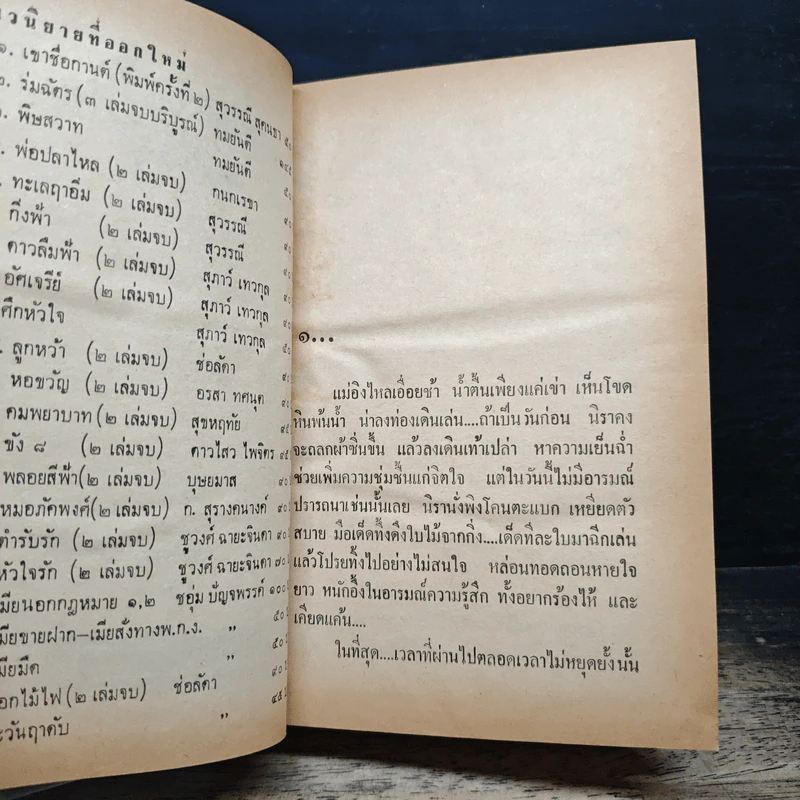 วนิยายที่ออกใหม่
๑. เขาชื่อกานต์ (พิมพ์ครั้งที่ ๒) สุวรรณี สุคนธา ๕๐
๒. ร่มฉัตร (๓ เล่มจบบริบูรณ์) ทมยันตี ๑๔๕
พิษสวาท ทมยันตี ๕๐
พ่อปลาไหล (๒ เล่มจบ) กนกเรขา ๙๐
ทะเลฤาอิ่ม (๒ เล่มจบ) สุวรรณี ๙๐
กิ่งฟ้า (๒ เล่มจบ) สุวรรณี ๙๐
ดาวลืมฟ้า (๒ เล่มจบ) สุภาว์ เทวกุล ๙๐
อัศเจรีย์ (๒ เล่มจบ) สุภาว์ เทวกุล ๙๐
ศึกหัวใจ สุภาว์ เทวกุล ๕๐
ลูกหว้า (๒ เล่มจบ) ช่อลัดา ๙๐
หอขวัญ (๒ เล่มจบ) อรสา ทศนุต ๙๐
คมพยาบาท (๒ เล่มจบ) สุขหฤทัย ๙๕
ขัง ๘ (๒ เล่มจบ) ดาวไสว ไพจิตร ๙๕
พลอยสีฟ้า (๒ เล่มจบ) บุษยมาส ๙๐
หมอภัคพงศ์ (๒ เล่มจบ) ก. สุรางคนางค์ ๙๐
ตำรับรัก (๒ เล่มจบ) ชูวงศ์ ฉายะจินดา ๙๐
หัวใจรัก (๒ เล่มจบ) ชูวงศ์ ฉายะจินดา ๗๐
เมียนอกกฎหมาย ๑,๒ ชอุ่ม ปัญจพรรค์ ๑๐๐
เมียขายฝาก–เมียสั่งทางพ.ก.ง. ” ๕๐
เมียมืด ” ๕๐
ดอกไม้ไฟ (๒ เล่มจบ) ช่อลัดา ๙๐
ตะวันฤาดับ ” ๔๕
๑...
แม่อิงไหลเอื่อยช้า น้ำตื้นเพียงแค่เข่า เห็นโขด
หินพ้นน้ำ น่าลงท่องเดินเล่น....ถ้าเป็นวันก่อน นิราคง
จะถลกผ้าซิ่นขึ้น แล้วลงเดินเท้าเปล่า หาความเย็นฉ่ำ
ช่วยเพิ่มความชุ่มชื้นแก่จิตใจ แต่ในวันนี้ไม่มีอารมณ์
ปรารถนาเช่นนั้นเลย นิรานั่งพิงโคนตะแบก เหยียดตัว
สบาย มือเด็ดทึ้งดึงใบไม้จากกิ่ง....เด็ดทีละใบมาฉีกเล่น
แล้วโปรยทิ้งไปอย่างไม่สนใจ หล่อนทอดถอนหายใจ
ยาว หนักอึ้งในอารมณ์ความรู้สึก ทั้งอยากร้องไห้ และ
เคียดแค้น....
ในที่สุด....เวลาที่ผ่านไปตลอดเวลาไม่หยุดยั้งนั้น